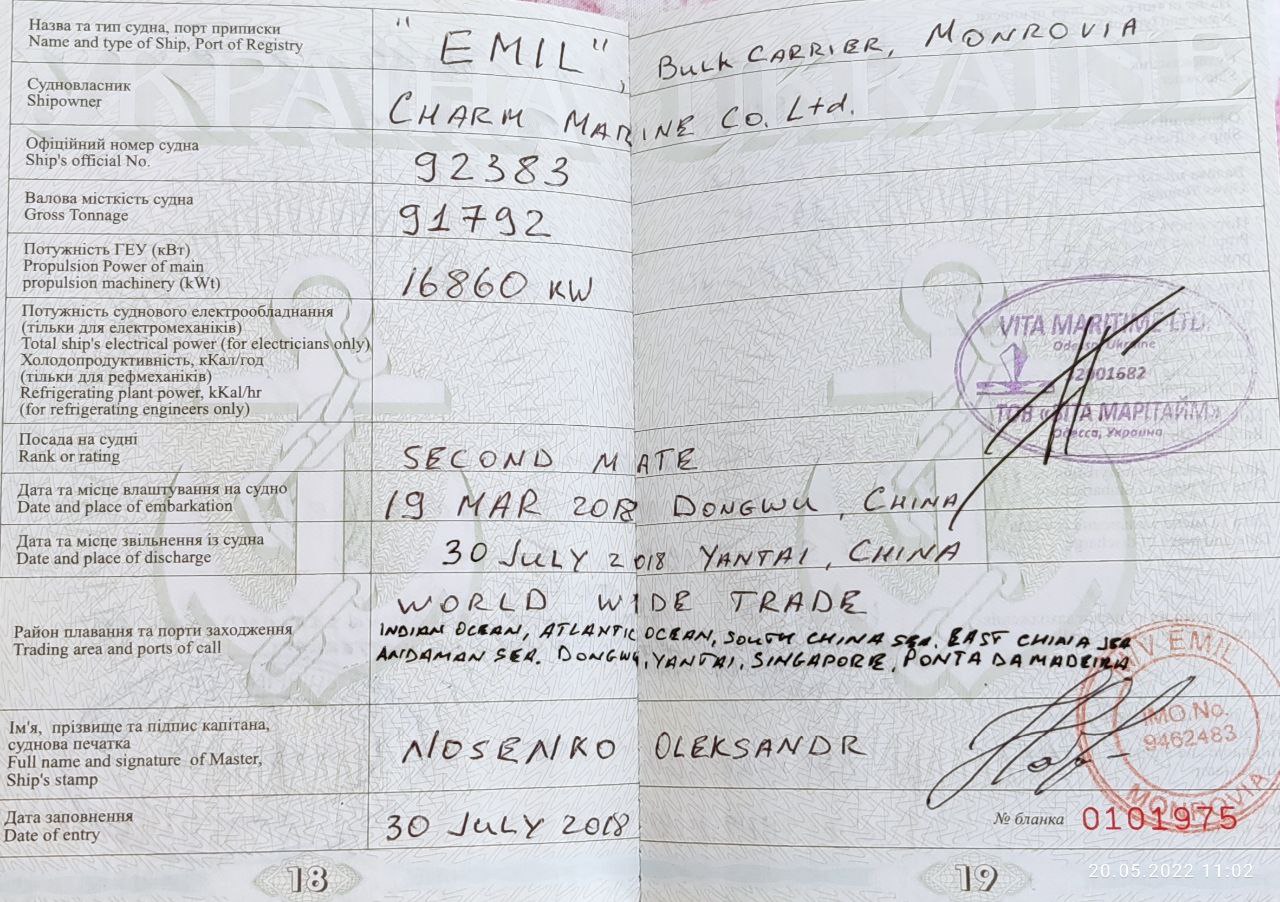 Назва та тип судна, порт приписки
Name and type of Ship, Port of Registry
"EMIL", BULK CARRIER, MONROVIA
Судновласник
Shipowner
CHARM MARINE CO. Ltd.
Офіційний номер судна
Ship's official No.
92383
Валова місткість судна
Gross Tonnage
91792
Потужність ГЕУ (кВт)
Propulsion Power of main
propulsion machinery (kWt)
16860 KW
Потужність суднового електрообладнання
(тільки для електромеханіків)
Total ship's electrical power (for electricians only)
Холодопродуктивність, кКал/год
(тільки для рефмеханіків)
Refrigerating plant power, kKal/hr
(for refrigerating engineers only)
VITA MARITIME LTD.
Odessa, Ukraine
32001682
ТОВ «ВІТА МАРІТАЙМ»
Одесса, Украина
Посада на судні
Rank or rating
SECOND MATE
Дата та місце влаштування на судно
Date and place of embarkation
19 MAR 2018 DONGWU, CHINA
Дата та місце звільнення із судна
Date and place of discharge
30 JULY 2018 YANTAI, CHINA
Район плавання та порти заходження
Trading area and ports of call
WORLD WIDE TRADE
INDIAN OCEAN, ATLANTIC OCEAN, SOUTH CHINA SEA, EAST CHINA SEA
ANDAMAN SEA. DONGWU, YANTAI, SINGAPORE, PONTA DA MADEIRA
Ім'я, прізвище та підпис капітана,
суднова печатка
Full name and signature of Master,
Ship's stamp
NOSENKO OLEKSANDR
MV EMIL
IMO.No.
9462483
MONROVIA
Дата заповнення
Date of entry
30 JULY 2018
№ бланка 0101975
18
19
20.05.2022 11:02